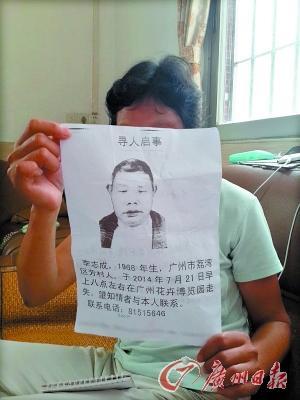 寻人启事
李志成，1968 年生，广州市荔湾
区芳村人，于 2014 年 7 月 21 日早
上八点左右在广州花卉博览园走
失，望知情者与本人联系。
联系电话：81515646
广州日报